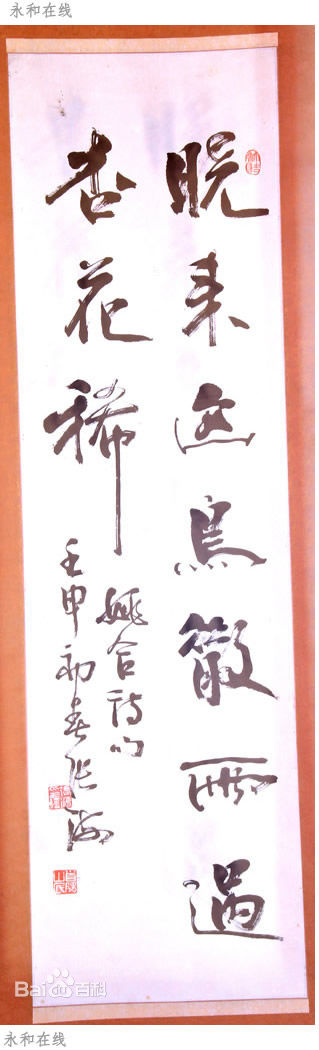 永和在线
晚来鳥散雨過
杏花稀
姚合诗句
壬申初春张海
Bai百科
永和在线